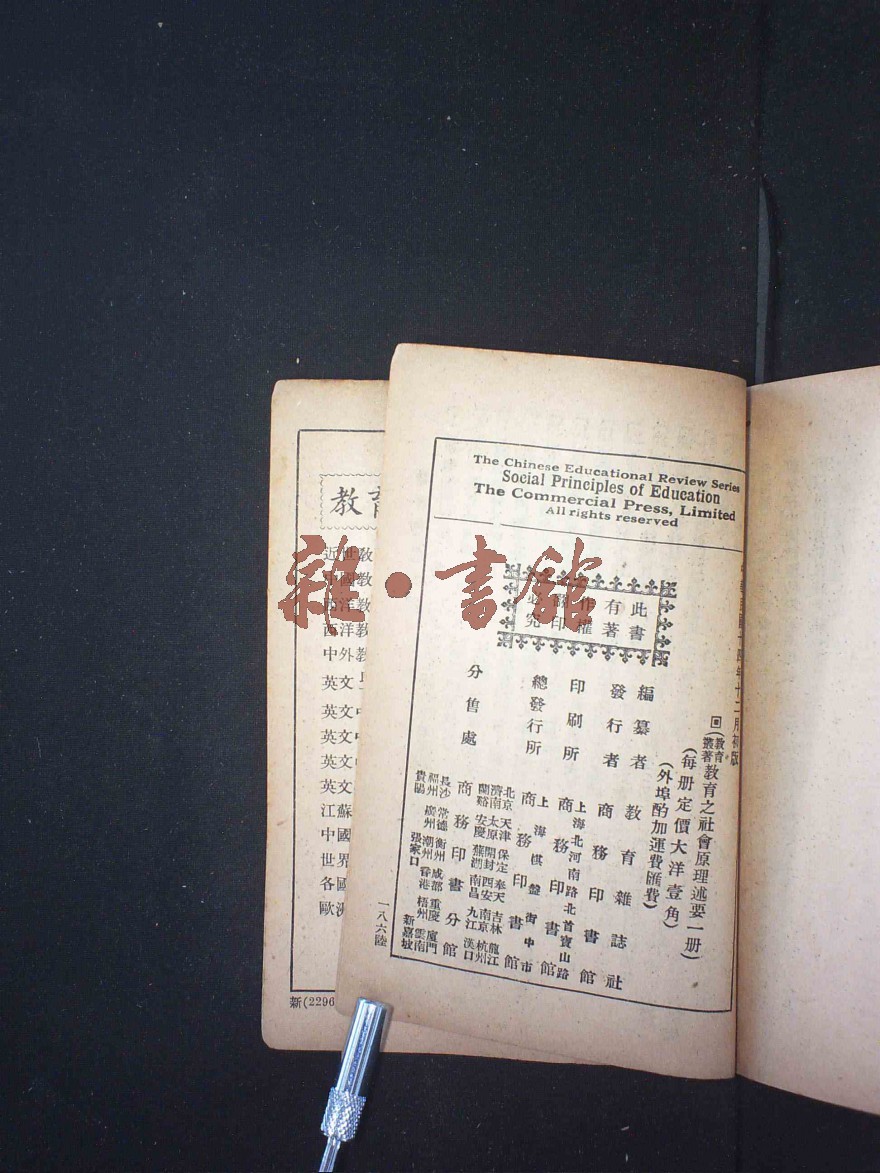 The Chinese Educational Review Series
Social Principles of Education
The Commercial Press, Limited
All rights reserved
中華民國十四年十二月初版
教育叢著
教育之社會原理述要一册
(每册定價大洋壹角)
(外埠酌加運費匯費)
此書
有著
作權
翻印
必究
編纂者 教育雜誌社
發行者 商務印書館
印刷所 上海北河南路北首寶山路 商務印書館
總發行所 上海棋盤街中市 商務印書館
分售處 商務印書分館
北京 天津 保定 奉天 吉林 龍江
濟南 太原 開封 西安 南京 杭州
蘭谿 安慶 蕪湖 南昌 九江 漢口
長沙 常德 衡州 成都 重慶 廈門
福州 廣州 潮州 香港 梧州 雲南
貴陽 張家口 新嘉坡
一八六陸
教育
近世教
中國教
西洋教
西洋教
中外教
英文
英文
英文
英文
英文
江蘇
中國
世界
各國
歐洲
新(2296
雜·書館